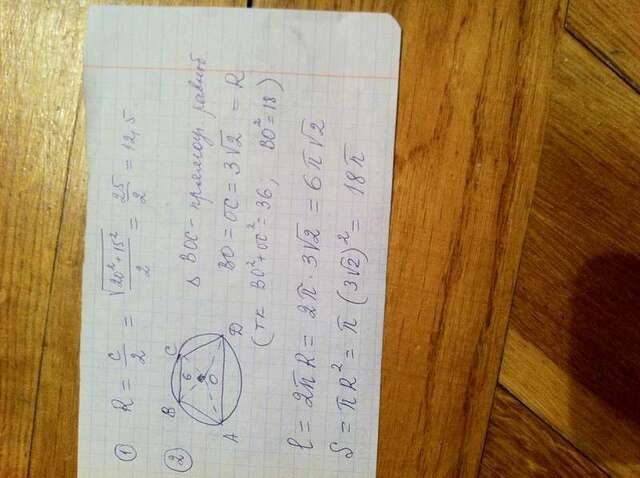 ① R = c/2 = √(20² + 15²)/2 = 25/2 = 12,5
② B C 6 O A D
△ BOC - прямоуг. равноб
BO = OC = 3√2 = R
(тк BO² + OC² = 36, BO² = 18)
l = 2πR = 2π · 3√2 = 6π√2
S = πR² = π (3√2)² = 18π